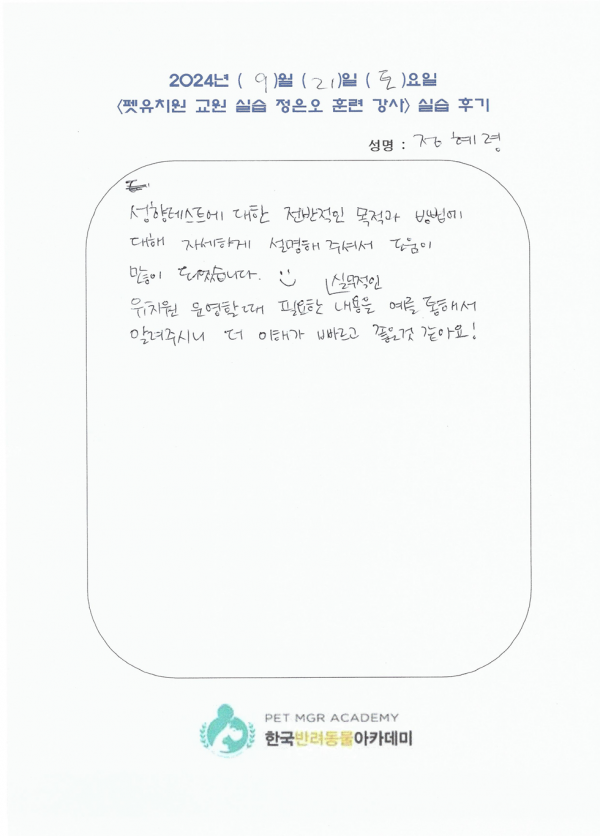 2024년 ( 9 )월 ( 21 )일 ( 토 )요일
<펫유치원 교원 실습 정은오 훈련 강사> 실습 후기
성명 : 정혜령
성향테스트에 대한 전반적인 목적과 방법에
대해 자세하게 설명해주셔서 도움이
많이 되었습니다.
실무적인
유치원 운영할때 필요한 내용을 예를 통해서
알려주시니 더 이해가 빠르고 좋은것 같아요!
PET MGR ACADEMY
한국반려동물아카데미